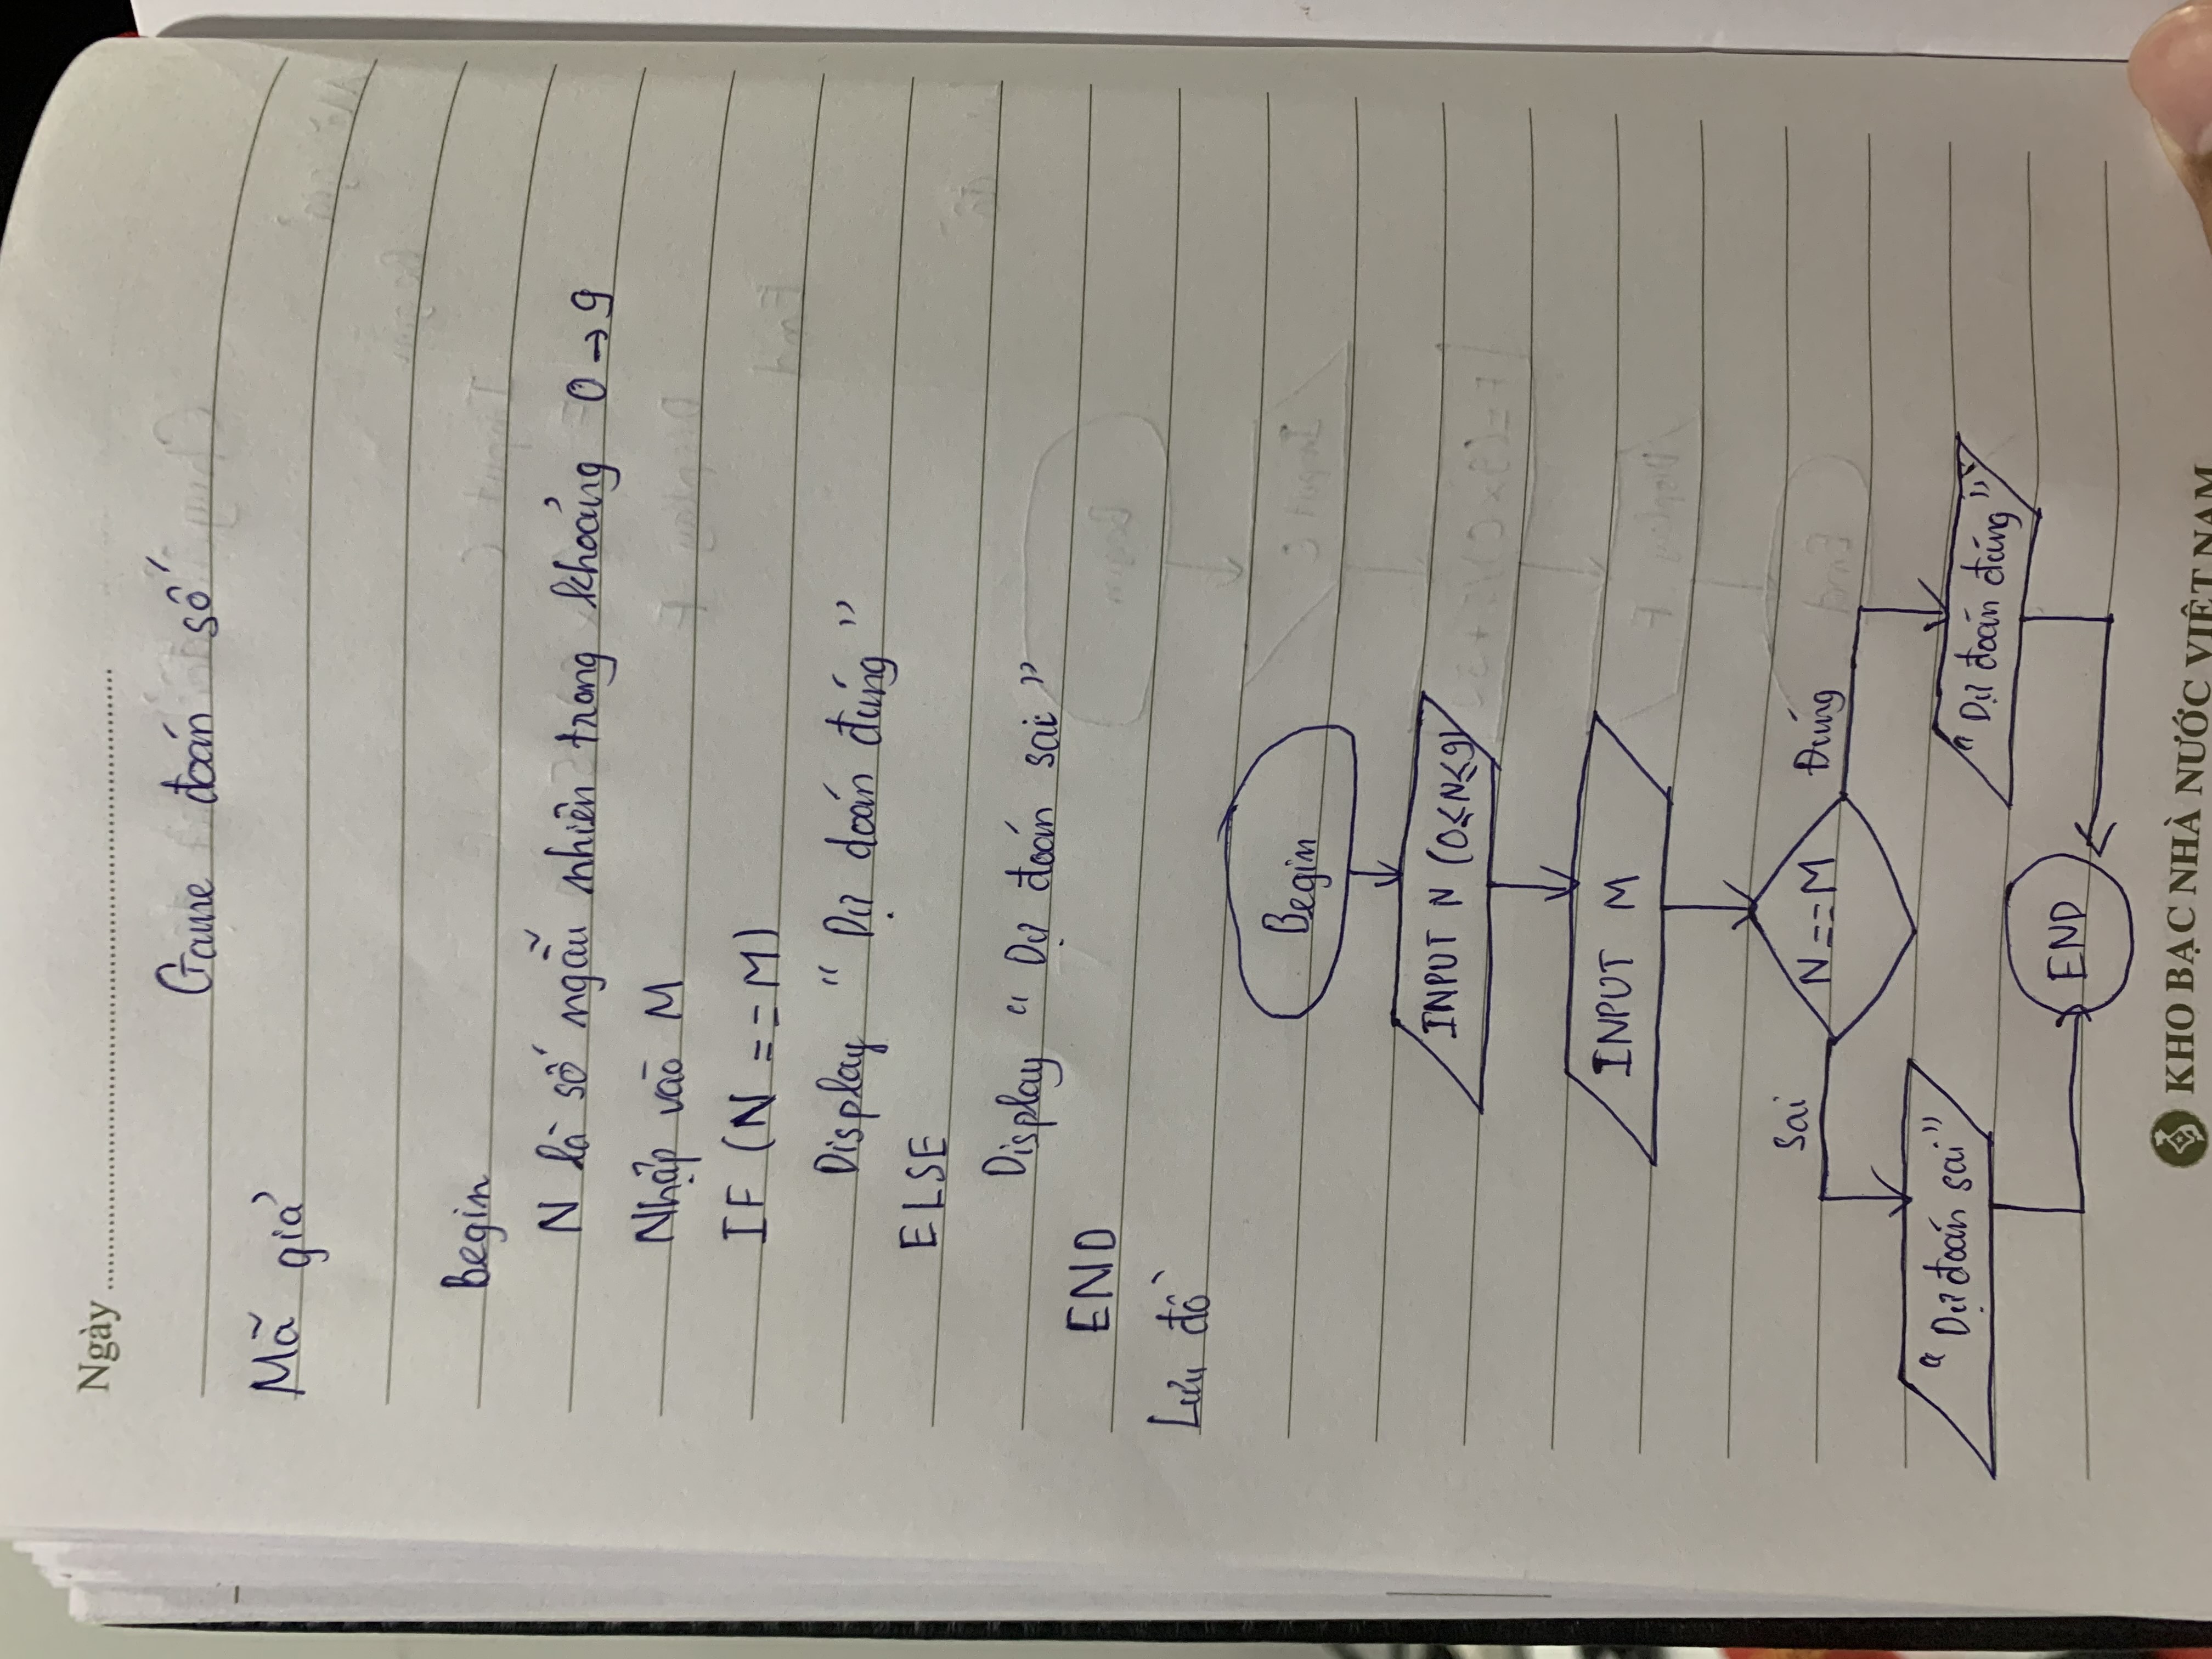 Ngày
Game đoán số
Mã giả
Begin
N là số ngẫu nhiên trong khoảng 0 → 9
Nhập vào M
IF (N == M)
Display " Dự doán đúng "
ELSE
Display " Dự đoán sai "
END
Lưu đồ
Begin
INPUT N (0≤N≤9)
INPUT M
N==M
Sai
Đúng
" Dự đoán sai "
" Dự đoán đúng "
END
KHO BẠC NHÀ NƯỚC VIỆT NAM